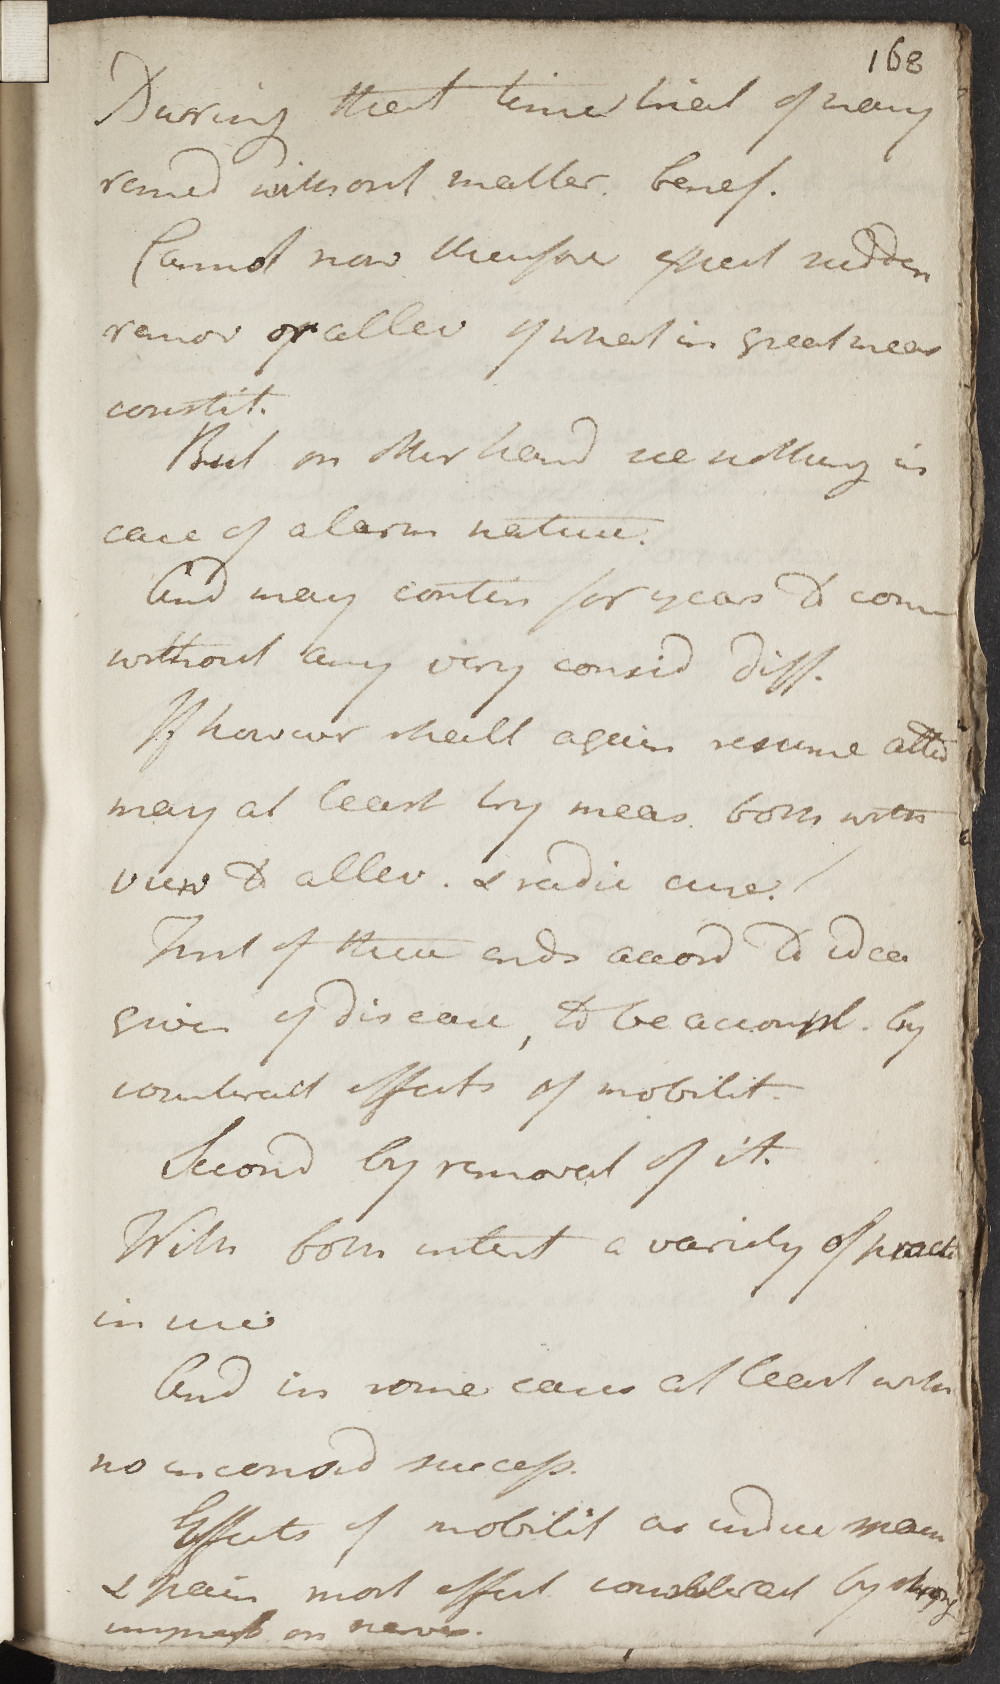 168
During that time trial of many
remed without matter. benef.
Cannot now therefore expect sudden
remov or allev of what in great meas
constit.
But on other hand see nothing in
case of alarm nature.
And may contin for years to come
without any very consid diff.
If however shall again resume atten
may at least try meas. both with
view to allev. & radic cure.
First of these ends accord to idea
given of disease, to be accompl. by
counteract effects of mobilit.
Second by removal of it.
With both intent a variety of pract
in use
And in some cases at least with
no inconsid success.
Effects of mobilit as induc spasm
& pain most effect counteract by strong
impress on nerves.